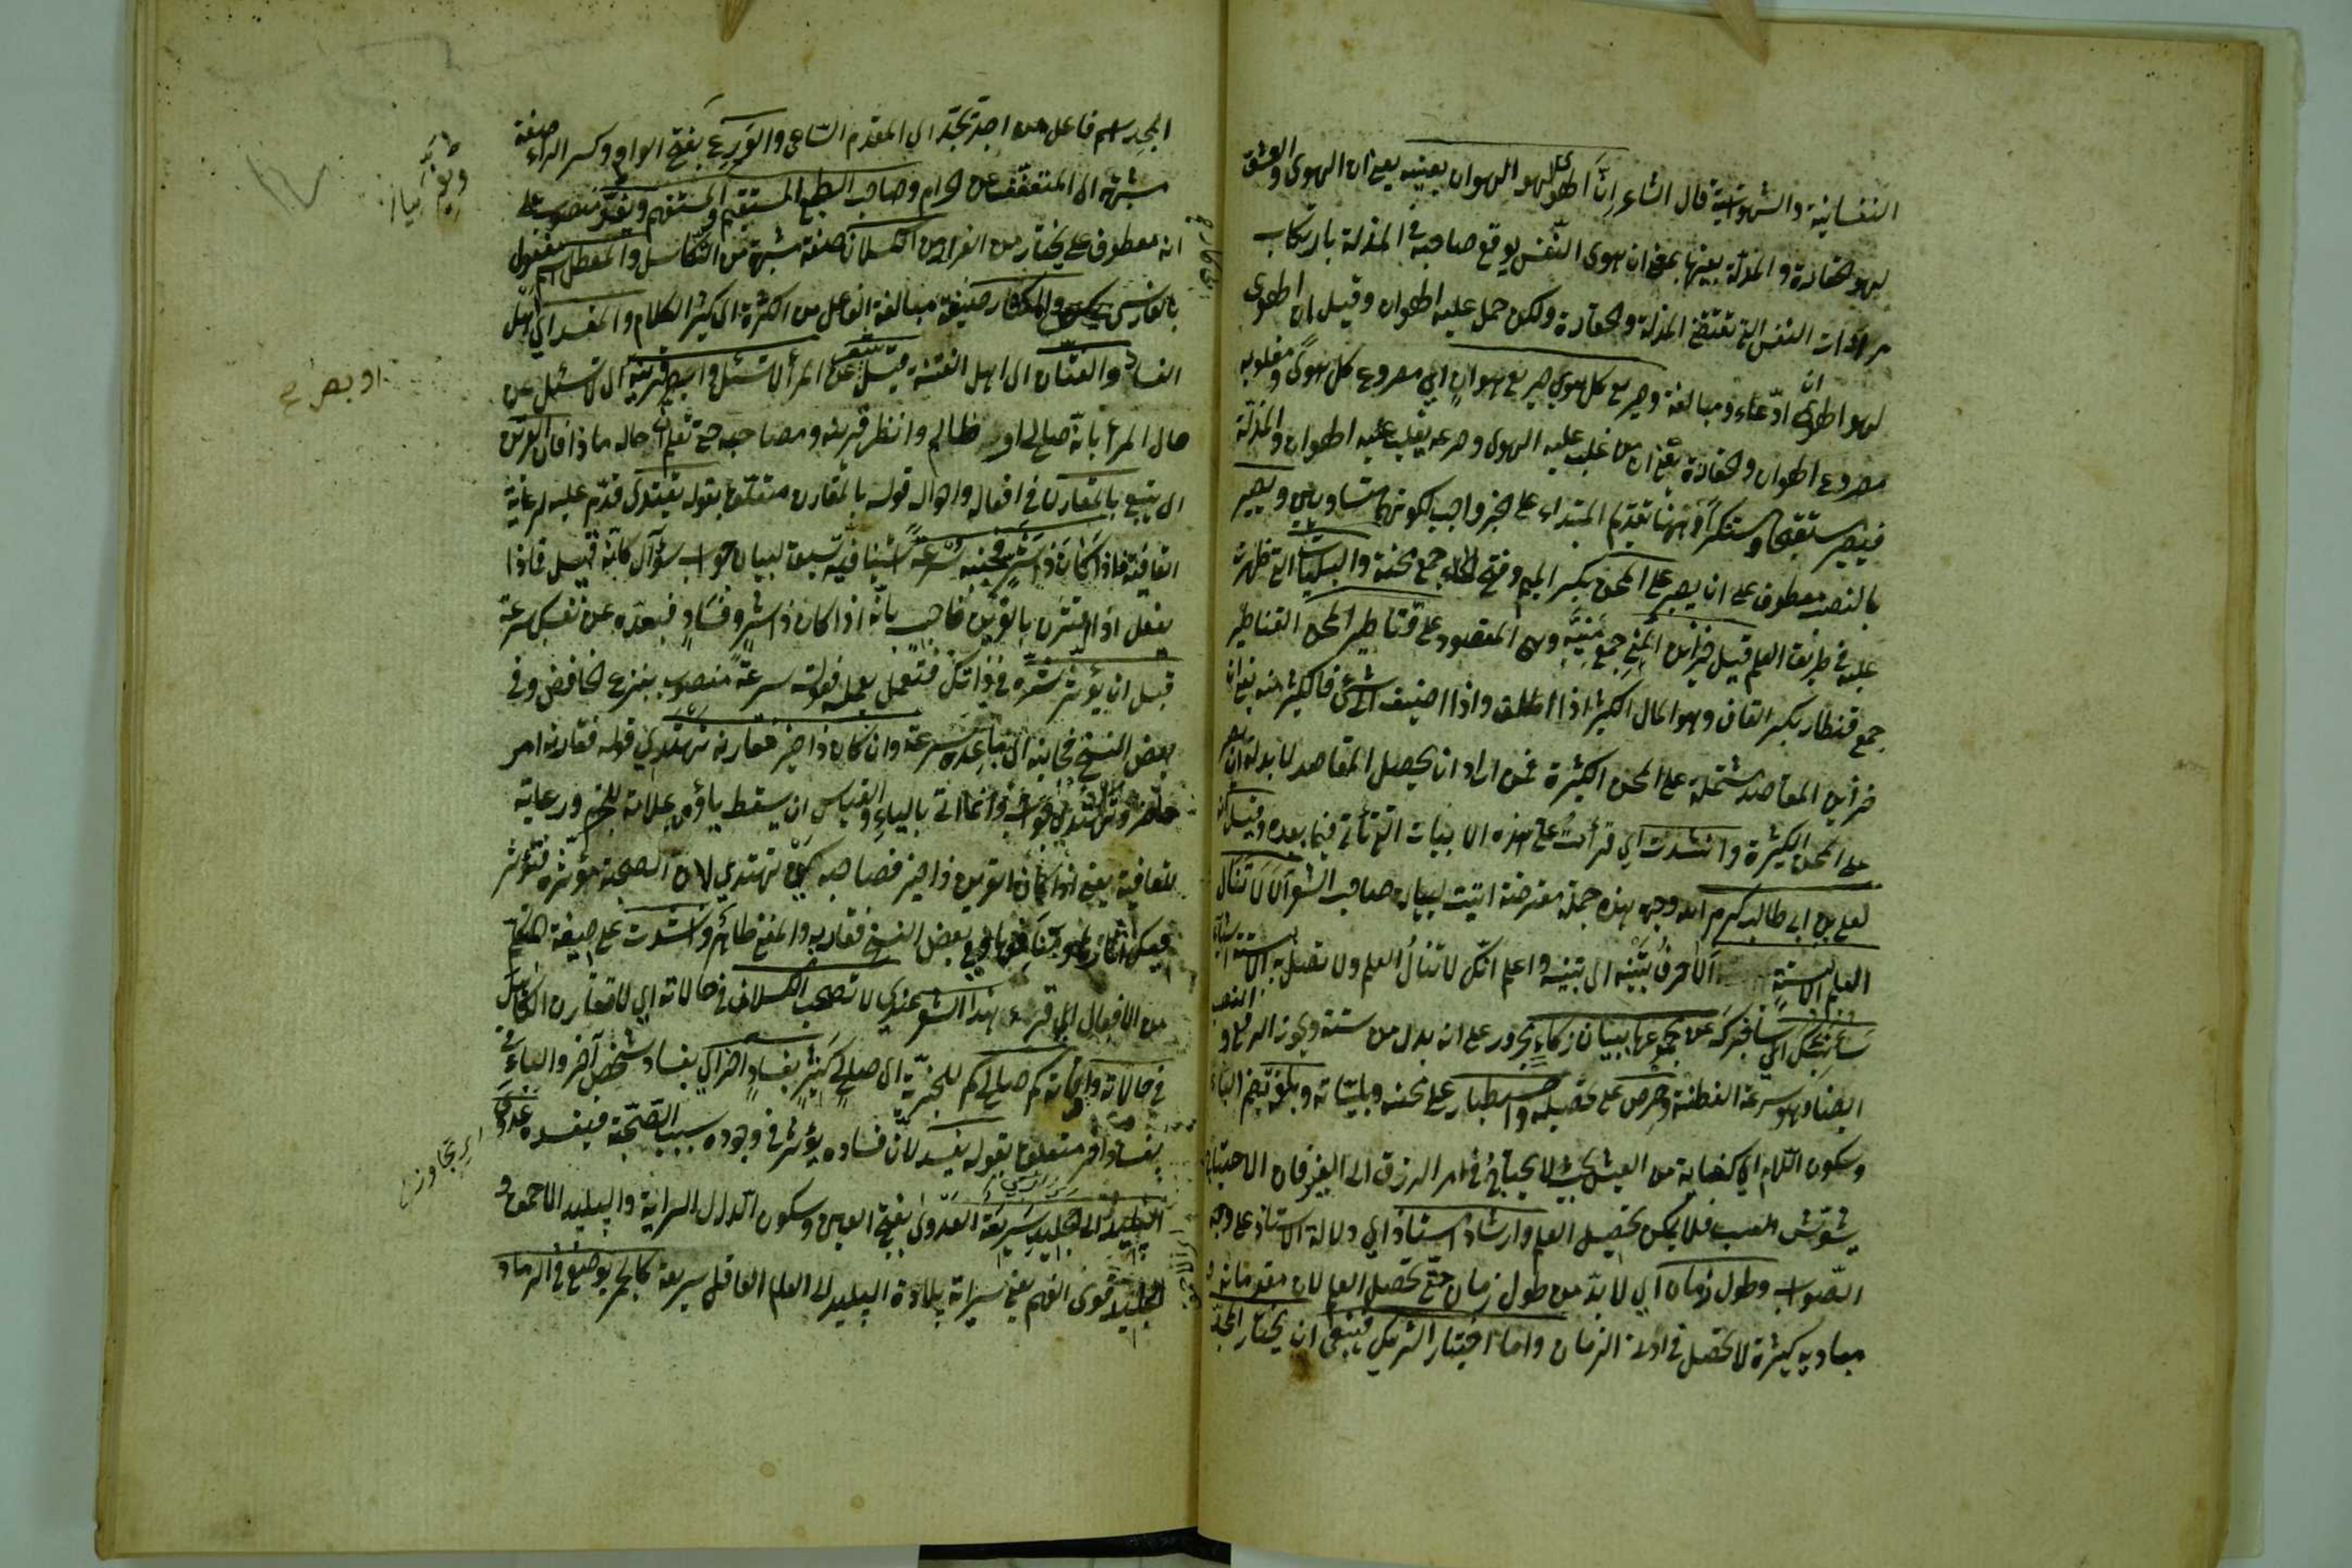 النفسانية والشهوانية قال الشاعر ان الهوى لهو الهوان بعينه يعني ان الهوى والعشق
لهو الحقارة والمذلة بعينها بمعنى ان هوى النفس يوقع صاحبه في المذلة بارتكاب
مرادات النفس التي تقتضي المذلة والحقارة ولكن حمل عليه الهوان وقيل ان الهوى
لهو الهوان ادعاء ومبالغة وصريع كل هوى صريع هوان اي مصروع كل هوى ومغلوبه
مصروع الهوان والحقارة يعني ان من غلب عليه الهوى وصرعه يغلب عليه الهوان والمذلة
فيصير مستقبحا ومستنكرا وههنا تقديم المبتداء على الخبر واجب لكونهما متساويين ويصبر
بالنصب معطوف على ان يصبر على المحن بكسر الميم وفتح الحاء جمع محنة والبليات التي ظهرت
عليه في طريقة العلم قيل خزائن المنى جمع منية وهي المقصود على قناطير المحن القناطير
جمع قنطار بكسر القاف وهو المال الكثير اذا اطلق واذا اضيف الى شئ فالكثير منه يعني ان
خزائن المقاصد مشتملة على المحن الكثيرة فمن اراد ان يحصل المقاصد لا بد له ان يصبر
على المحن الكثيرة وانشدت اي قرأت على هذه الابيات التي تأتي فيما بعده وقيل انه
لعلي بن ابي طالب كرم الله وجهه هذه جملة معترضة اتيت لبيان صاحب الشعر الا لا تنال
العلم الا بستة الا حرف تنبيه اي تنبه واعلم انك لا تنال العلم ولا تصل به الا بستة اشياء
سأنبئك اي سأخبرك عن مجموعها ببيان ذكاء مجرور على انه بدل من ستة ويجوز الرفع والنصب
ايضا وهو سرعة الفطنة وحرص على تحصيله واصطبار على محنه وبلياته وبلغة بضم الباء
وسكون اللام اي كفاية من العيش بحيث لا يحتاج في امر الرزق الى الغير فان الاحتياج
يشوش القلب فلا يمكن تحصيل العلم وارشاد استاذ اي دلالة الاستاذ على وجه
الصواب وطول زمان اي لا بد من طول زمان حتى تحصل العلم لان مقدماته و
مباديه كثيرة لا تحصل في ادنى الزمان واما اختيار الشريك فينبغي ان يختار المجد
المجد اسم فاعل من اجد يجد اي المقدم الساعي والورع بفتح الواو وكسر الراء صفة
مشبهة اي المتعفف عن الحرام وصاحب الطبع المستقيم والمستفهم ويفر منصوب على
انه معطوف على يختار من الفرار من الكسلان صفة مشبهة من التكاسل والمعطل اسم مفعول
بالفارسي والمكثار صيغة مبالغة الفاعل من الكثرة اي كثير الكلام والمفسد اي اهل
الفساد والفتان اي اهل الفتنة قيل عن المرء لا تسئل وابصر قرينه اي لا تسئل عن
حال المرء بانه صالح او ظالم وانظر قرينه ومصاحبه حتى تعلم حاله ماذا فان القرين
اي يتبع بالمقارن في افعاله واحواله قوله بالمقارن متعلق بقوله يقتدي قدم عليه لرعاية
القافية فاذا كان ذا شر فجنبه سرعة استينافية سيقت لبيان جواب سؤال كانه قيل فماذا
يفعل اذا اقترن بالقرين فاجيب بانه اذا كان ذا شر وفساد فبعده عن نفسك سرعة
قبل ان يؤثر شره في ذاتك فتعمل بعمله قوله سرعة منصوب بنزع الخافض وفي
بعض النسخ فجانبه اي تباعده سرعة وان كان ذا خير فقارنه تهتدي قوله فقارنه امر
حاضر وتهتدي جوابه وانما اتى بالياء والقياس ان يسقط ياؤه علامة للجزم ورعاية
للقافية يعني اذا كان القرين ذا خير فصاحبه كي تهتدي لان الصحبة مؤثرة فتؤثر
فيك وفي بعض النسخ فقاربه والمعنى ظاهر وانشدت على صيغة المتكلم
من الافعال اي قرء هذا الشعر عندي لا تصحب الكسلان في حالاته اي لا تقارن الكاسل
في حالاته واوقاته كم صالح كم للخبرية اي صالح كثير بفساد آخر اي بفساد شخص آخر والباء في
بفساد آخر متعلق بقوله يفسد لان فساده يؤثر في وجوده بسبب الصحبة فيفسده عدوى
البليد الى الجليد سريعة العدوى بفتح العين وسكون الدال السراية والبليد الاحمق و
الجليد قوي الفهم يعني سراية بلادة البليد الى العلم العاقل سريعة كالجمر يوضع في الرماد
او بصر
اي تجاوز